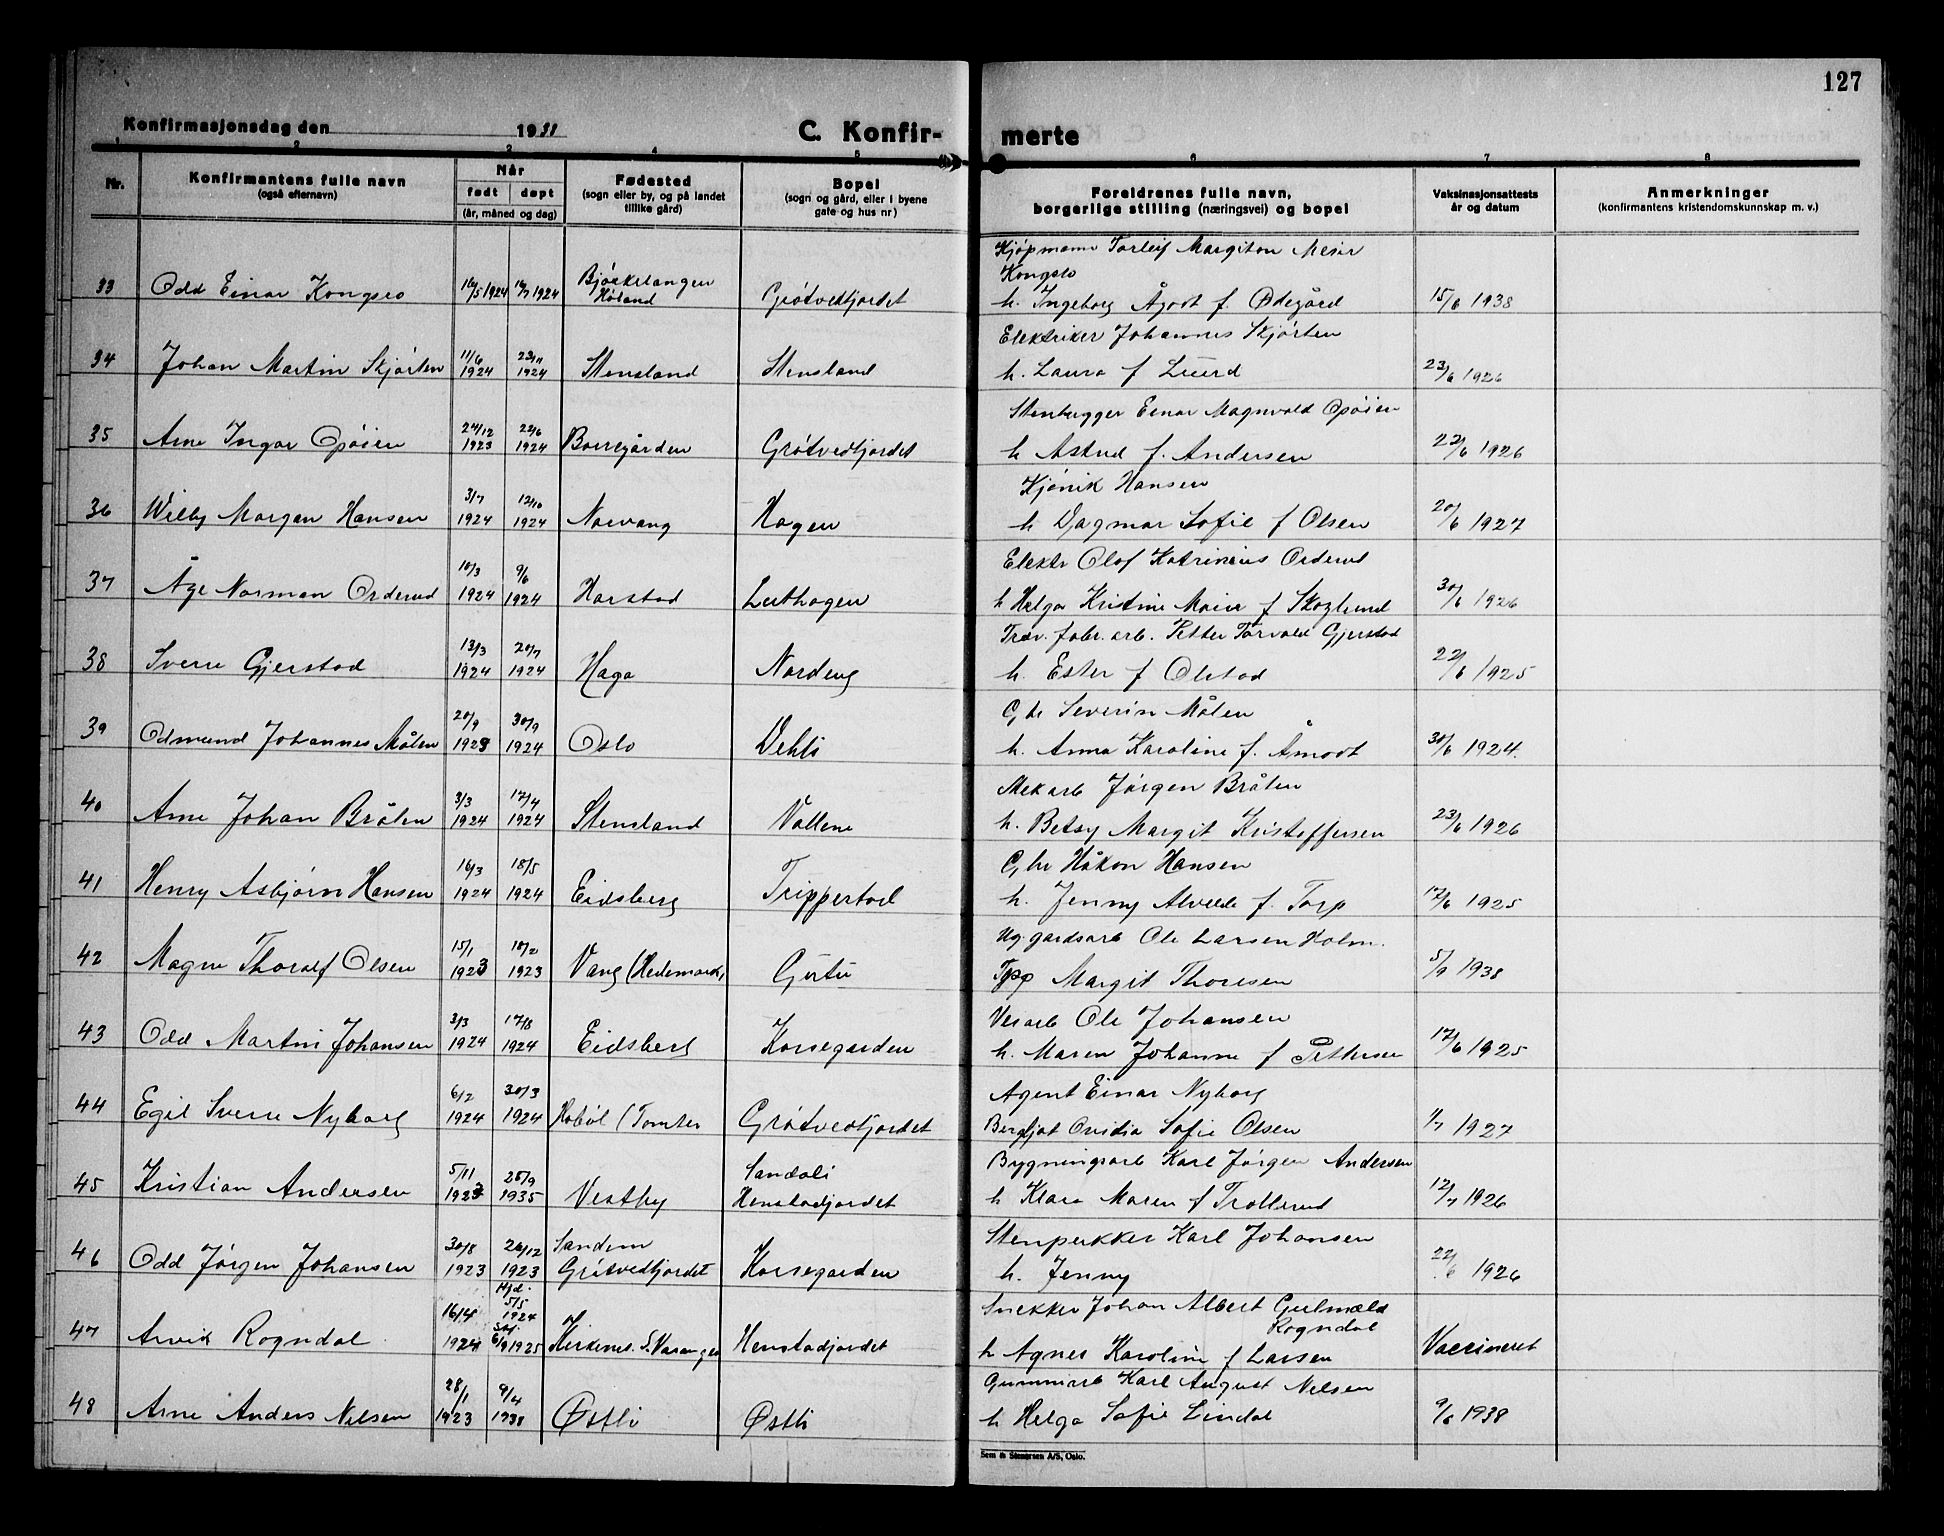 127
Konfirmasjonsdag den 19
C. Konfir- merte
1 2 3 4 5 6 7 8
Nr.
Konfirmantens fulle navn
(også efternavn)
Når
født døpt
(år, måned og dag)
Fødested
(sogn eller by, og på landet
tillike gård)
Bopel
(sogn og gård, eller i byene
gate og hus nr)
Foreldrenes fulle navn,
borgerlige stilling (næringsvei) og bopel
Vaksinasjonsattests
år og datum
Anmerkninger
(konfirmantens kristendomskunnskap m. v.)
Kjøpmann Torleif Margiton Meier
Kongsro
33 Odd Einar Kongsro 16/5 1924 1924 Bjørkelangen
Høland Grøtvedtjordet h. Ingeborg Ågodt f. Ødegård 15/6 1938
Elektriker Johannes Skjørten
34 Johan Martin Skjørten 11/6 1924 23/11 1924 Stensland Stensland h. Laura f 23/6 1926
Stenhugger Einar Magnvald Opøien
35 Arne Ingar Opøien 24/12 1923 22/6 1924 Borregården Grøtvedtjordet h Astrid f. Andersen 22/6 1926
Hansen
36 Willy Morgan Hansen 3/7 1924 12/10 1924 Norvang Hagen h Dagmar Sofie f Olsen 20/6 1927
Elektr Olof Katrinius Orderud
37 Åge Norman Orderud 10/3 1924 9/6 1924 Harstad Leuthagen h Helga Kristine Marie f Skoglund 30/6 1926
Trev. fabr. arb. Petter Torvald Gjerstad
38 Sverre Gjerstad 13/3 1924 20/7 1924 Haga Nordeng h. Ester f Olstad 22/6 1925
Gbr Severin Målen
39 Odmund Johannes Målen 20/9 1923 30/9 1924 Oslo Vehli h. Anna Karoline f. Åmodt 30/6 1924.
Mek arb Jørgen Bråten
40 Arne Johan Bråten 3/3 1924 17/4 1924 Stensland Vallene h. Betsy Margit Kristoffersen 23/6 1926
Gbr Håkon Hansen
41 Henry Asbjørn Hansen 16/3 1924 18/5 1924 Eidsberg Trippestad h. Jenny Alvilde f. Torp 17/6 1925
Ug. gårdsarb Ole Larsen Holm.
42 Magne Thoralf Olsen 15/1 1923 18/2 1923 Vang (Hedemark) Margit Thoresen 5/9 1938
Ver arb Ole Johansen
43 Odd Martin Johansen 3/3 1924 17/8 1924 Eidsberg Korsegården h. Maren Johanne f Pettersen 17/6 1925
Agent Einar Nyborg
44 Egil Sverre Nyborg 6/2 1924 30/3 1924 Hobøl (Tomter Grøtvedtjordet Bergljot Ovidia Sofie Olsen 1/7 1927
Bygningsarb Karl Jørgen Andersen
45 Kristian Andersen 5/11 1923 25/9 1935 Vestby Sandoli
Henstadjordet h Klara Maren f Trollerud 12/7 1926
Stenpukker Karl Johansen
46 Odd Jørgen Johansen 30/8 1923 26/12 1923 Sandem
Grøtvedtjordet Korsegården h. Jenny 22/6 1926
Snekker Johan Albert Gulmæld
Rogndal
47 Arvik Rogndal 16/4 1924 Hjd. 5/5 1924 6/9 1925 Kirkenes. S. Varanger Henstadjordet h Agnes Karoline f Larsen Vaccineret
Gummiarb Karl August Nilsen
48 Arne Anders Nilsen 28/1 1923 9/4 1938 Østli Østli h Helga Sofie Lindal 9/6 1938
Sem & Stenersen A/S, Oslo.